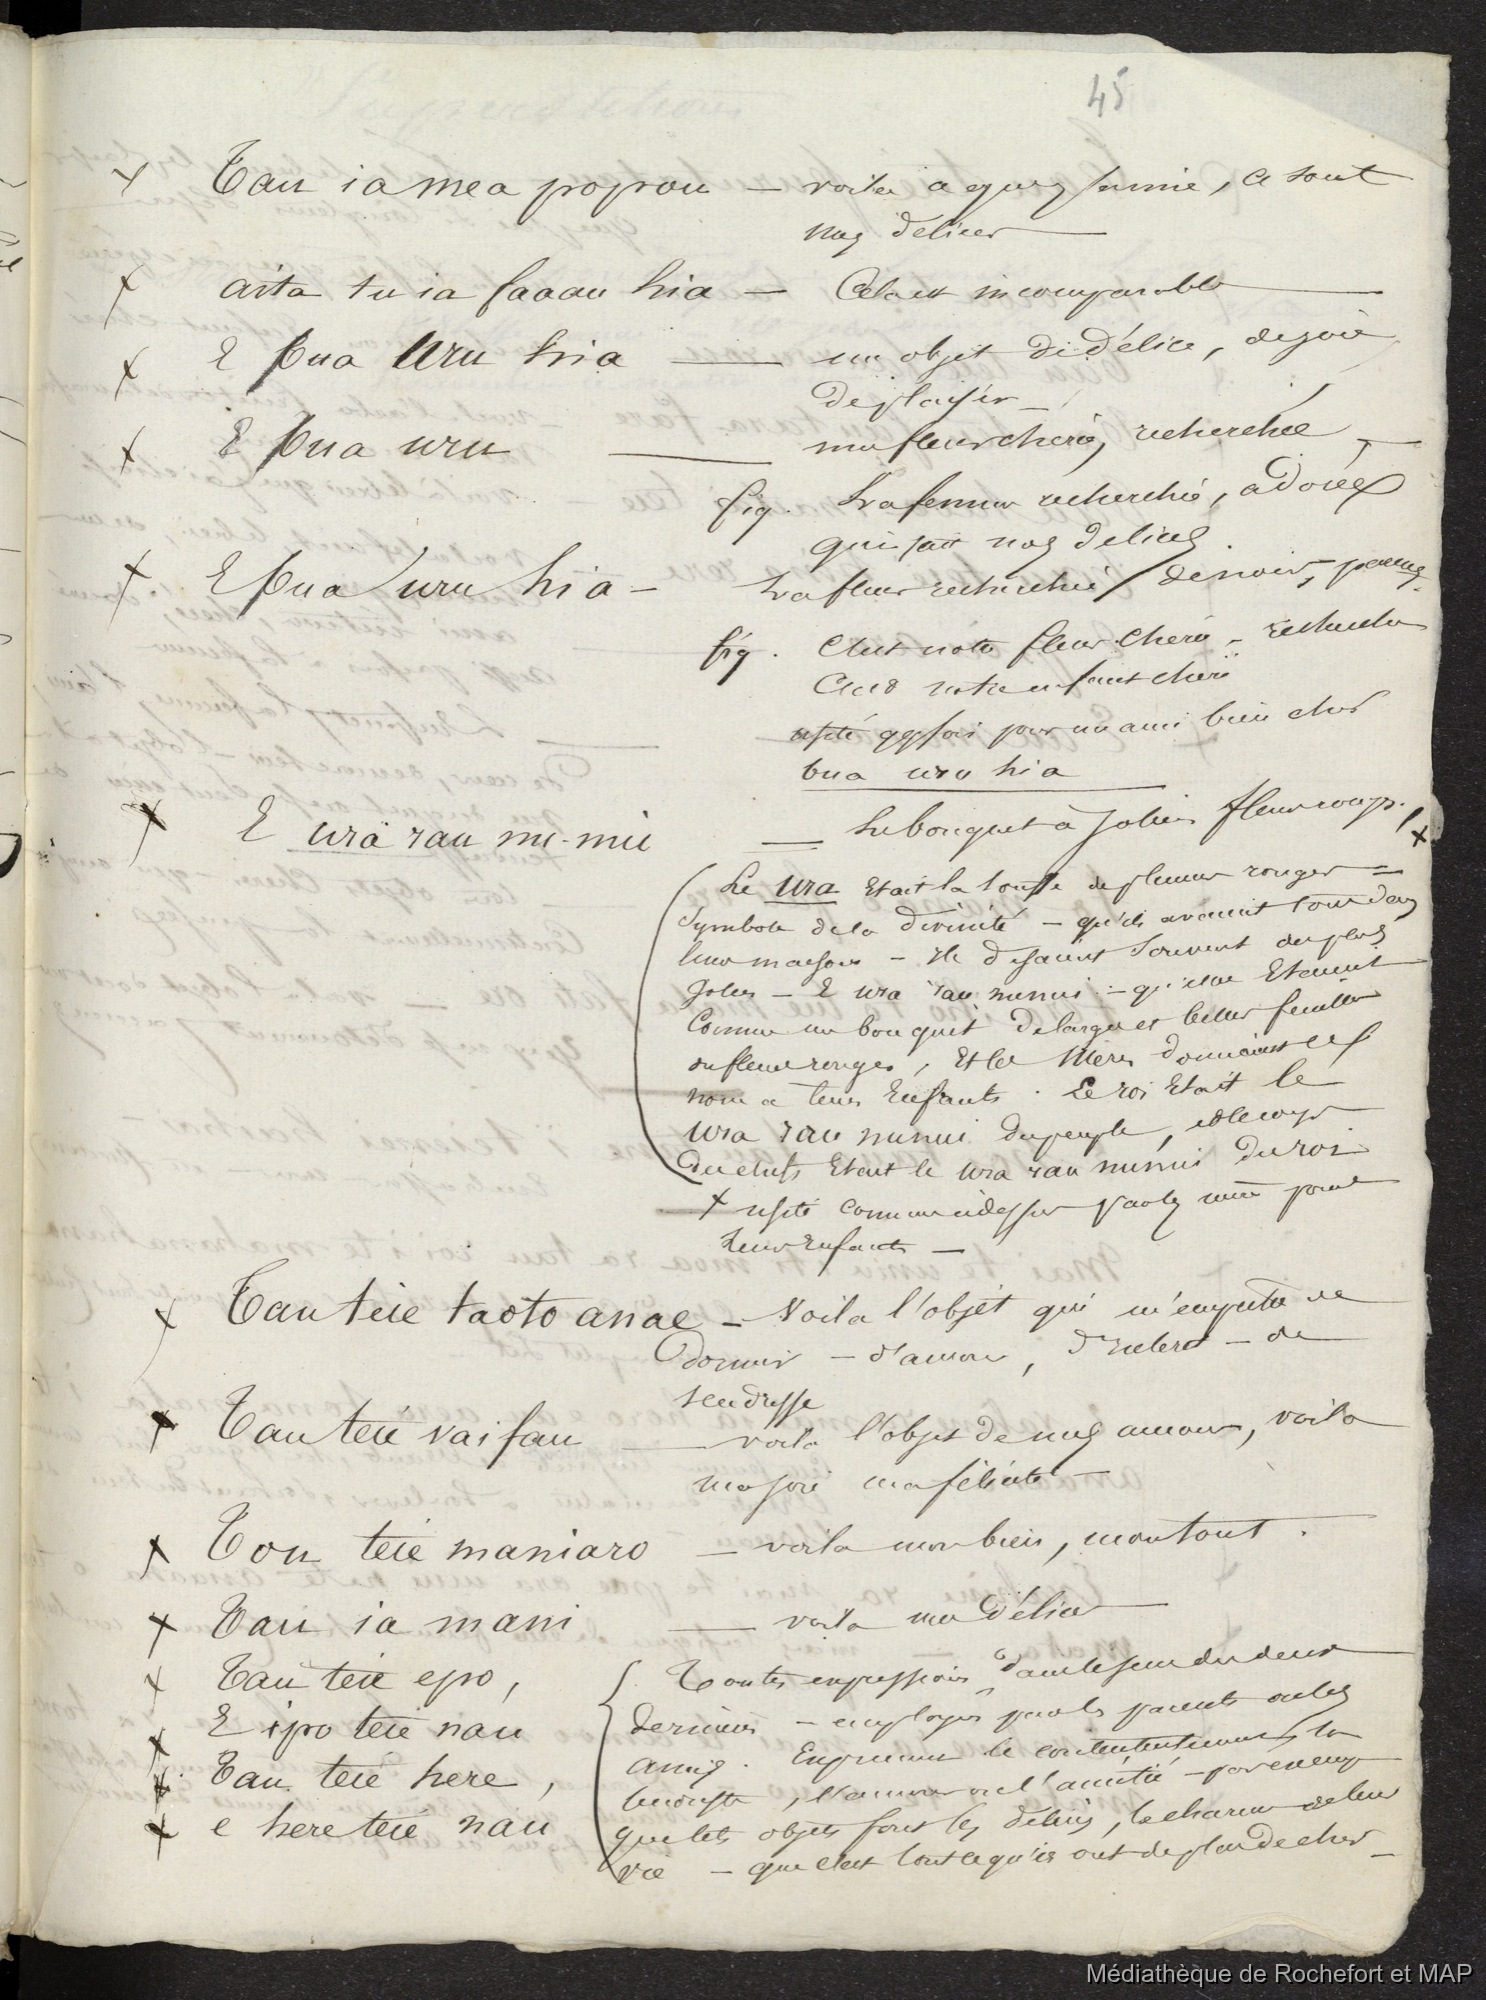 45
+ Tau ia mea popou — voila a que j'aime, ce sont
nos délices
+ aita tu ia faaau hia — Cela est incomparable
+ E pua uru hia — un objet de délice, de joie,
de plaisir
+ E pua uru — ma fleur cherie, recherchée
fig. La femme recherchée, adorée
qui fait nos delices.
+ E pua uru hia — La fleur recherchée
fig. C'est notre fleur cherie - recherchée
C'est notre enfant cheri
usité qqfois pour un ami bien cher
bua uru hia
+ E ura rau nu-mii — Le bouquet à jolies fleurs rouges. +
Le ura Etait la touffe de plumes rouges =
Symbole de la Divinité — qu'ils avaient tous dans
leur maison — Ils disaient souvent des plus
Jolies — E ura rau numui — qu'elles Etaient
Comme un bouquet de larges et belles feuilles
ou fleurs rouges, Et les Mères donnaient ce
nom a leurs Enfants. Le roi Etait le
ura rau numui du peuple, et le corps
des chefs Etait le ura rau numui Du roi
+ usité comme ci dessus par les mères pour
Leurs Enfants —
+ Tau teie taoto anae — Voila l'objet qui m'empeche de
Dormir — d'amour, — de
tendresse
+ Tau teie vai fau — voila l'objet de mes amours, voila
ma joie ma félicité —
+ Tou teie maniaro — voila mon bien, mon tout.
+ Tau ia mani — voila ma délice
+ Tau teie epo,
+ E ipo teie nau
+ Tau teie here,
+ e here teie nau
Toutes expressions dans le sens des deux
dernieres — employées par les parents ou les
amis. Expriment le contentement, la
, l'amour ou l'amitié —
que tels objets font les délices, le charme de leur
vie — que c'est tout ce qu'ils ont de plus De cher —
Médiathèque de Rochefort et MAP